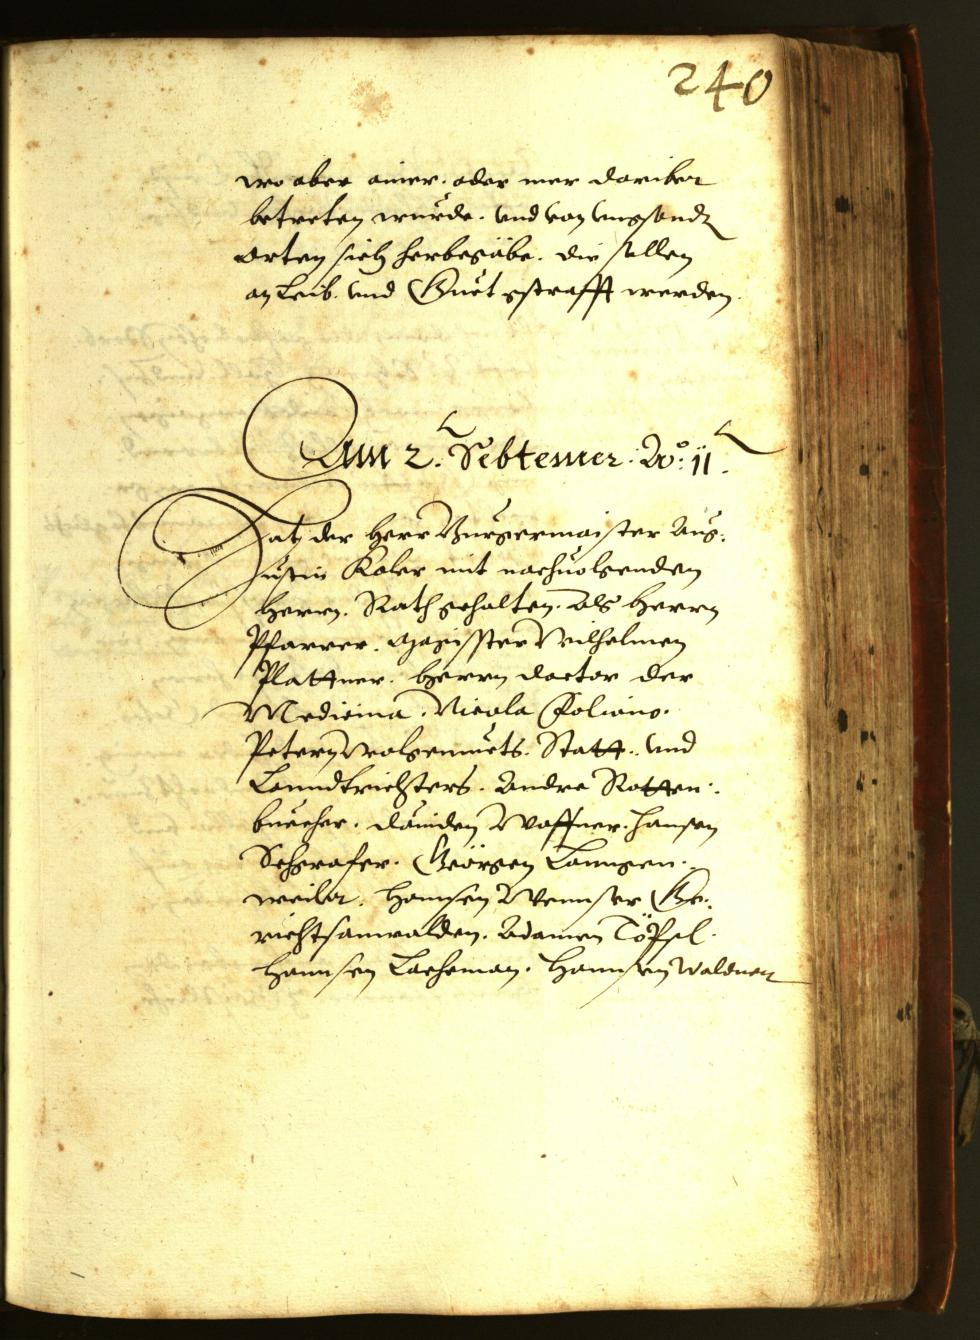 240
wo aber ainer. oder mer dariber
betreten wurde. und von ungsundt
orten sich herbegäbe. die sollen
an Leib. und Guet gstrafft werden.
Am 2. Sebtemer. Ao: 11.
Hat der Herr Burgermaister Aug:
ustin Koler mit nachuolgenden
herrn. Rath gehalten. Als herrn
Pfarrer. Magister Wilhelmen
Plattner. herrn doctor der
Medicina. Nicola
Petern Wolgemuets. Statt. und
Lanndtrichters. Andre Rotten:
buecher. dauiden Waffner. hansen
Schgrafer. Georgen Lanngen:
weiler. hannsen Wennser Ge:
richtsanwalden. Adamen Töpsl.
hannsen Lachman. hannsen Waldner